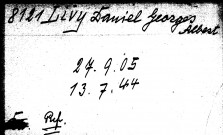 8121 Livy Daniel Georges
Albert
27.9.05
13.7.44
Ref.